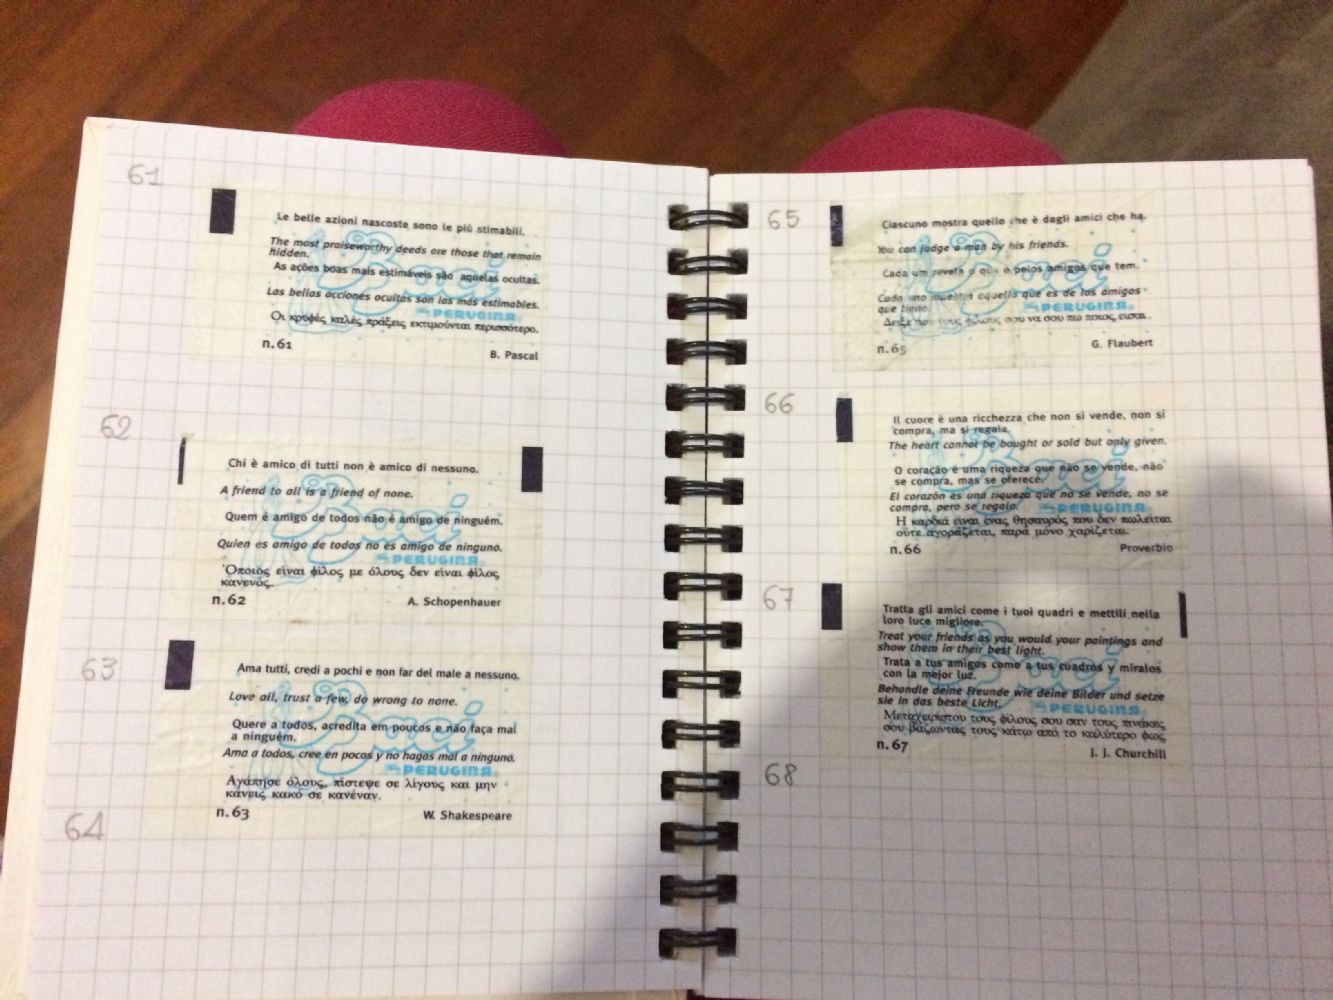 61
Le belle azioni nascoste sono le più stimabili.
The most praiseworthy deeds are those that remain
hidden.
As ações boas mais estimáveis são aquelas ocultas.
Las bellas acciones ocultas son las más estimables.
Οι κρυφές καλές πράξεις εκτιμούνται περισσότερο.
n.61
B. Pascal
Baci
PERUGINA
62
Chi è amico di tutti non è amico di nessuno.
A friend to all is a friend of none.
Quem é amigo de todos não é amigo de ninguém.
Quien es amigo de todos no es amigo de ninguno.
Όποιος είναι φίλος με όλους δεν είναι φίλος
κανενός.
n.62
A. Schopenhauer
Baci
PERUGINA
63
Ama tutti, credi a pochi e non far del male a nessuno.
Love all, trust a few, do wrong to none.
Quere a todos, acredita em poucos e não faça mal
a ninguém.
Ama a todos, cree en pocos y no hagas mal a ninguno.
Αγάπησε όλους, πίστεψε σε λίγους και μην
κάνεις κακό σε κανέναν.
n.63
W. Shakespeare
Baci
PERUGINA
64
65
Ciascuno mostra quello che è dagli amici che ha.
You can judge a man by his friends.
Cada um revela o que é pelos amigos que tem.
Cada uno muestra aquello que es de los amigos
que tiene.
Δείξε μου τους φίλους σου να σου πω ποιος είσαι.
n.65
G. Flaubert
Baci
PERUGINA
66
Il cuore è una ricchezza che non si vende, non si
compra, ma si regala.
The heart cannot be bought or sold but only given.
O coração é uma riqueza que não se vende, não
se compra, mas se oferece.
El corazón es una riqueza que no se vende, no se
compra, pero se regala.
Η καρδιά είναι ένας θησαυρός που δεν πωλείται
ούτε αγοράζεται, παρά μόνο χαρίζεται.
n.66
Proverbio
Baci
PERUGINA
67
Tratta gli amici come i tuoi quadri e mettili nella
loro luce migliore.
Treat your friends as you would your paintings and
show them in their best light.
Trata a tus amigos como a tus cuadros y míralos
con la mejor luz.
Behandle deine Freunde wie deine Bilder und setze
sie in das beste Licht.
Μεταχειρίσου τους φίλους σου σαν τους πίνακές
σου βάζοντάς τους κάτω από το καλύτερο φως.
n.67
J. J. Churchill
Baci
PERUGINA
68